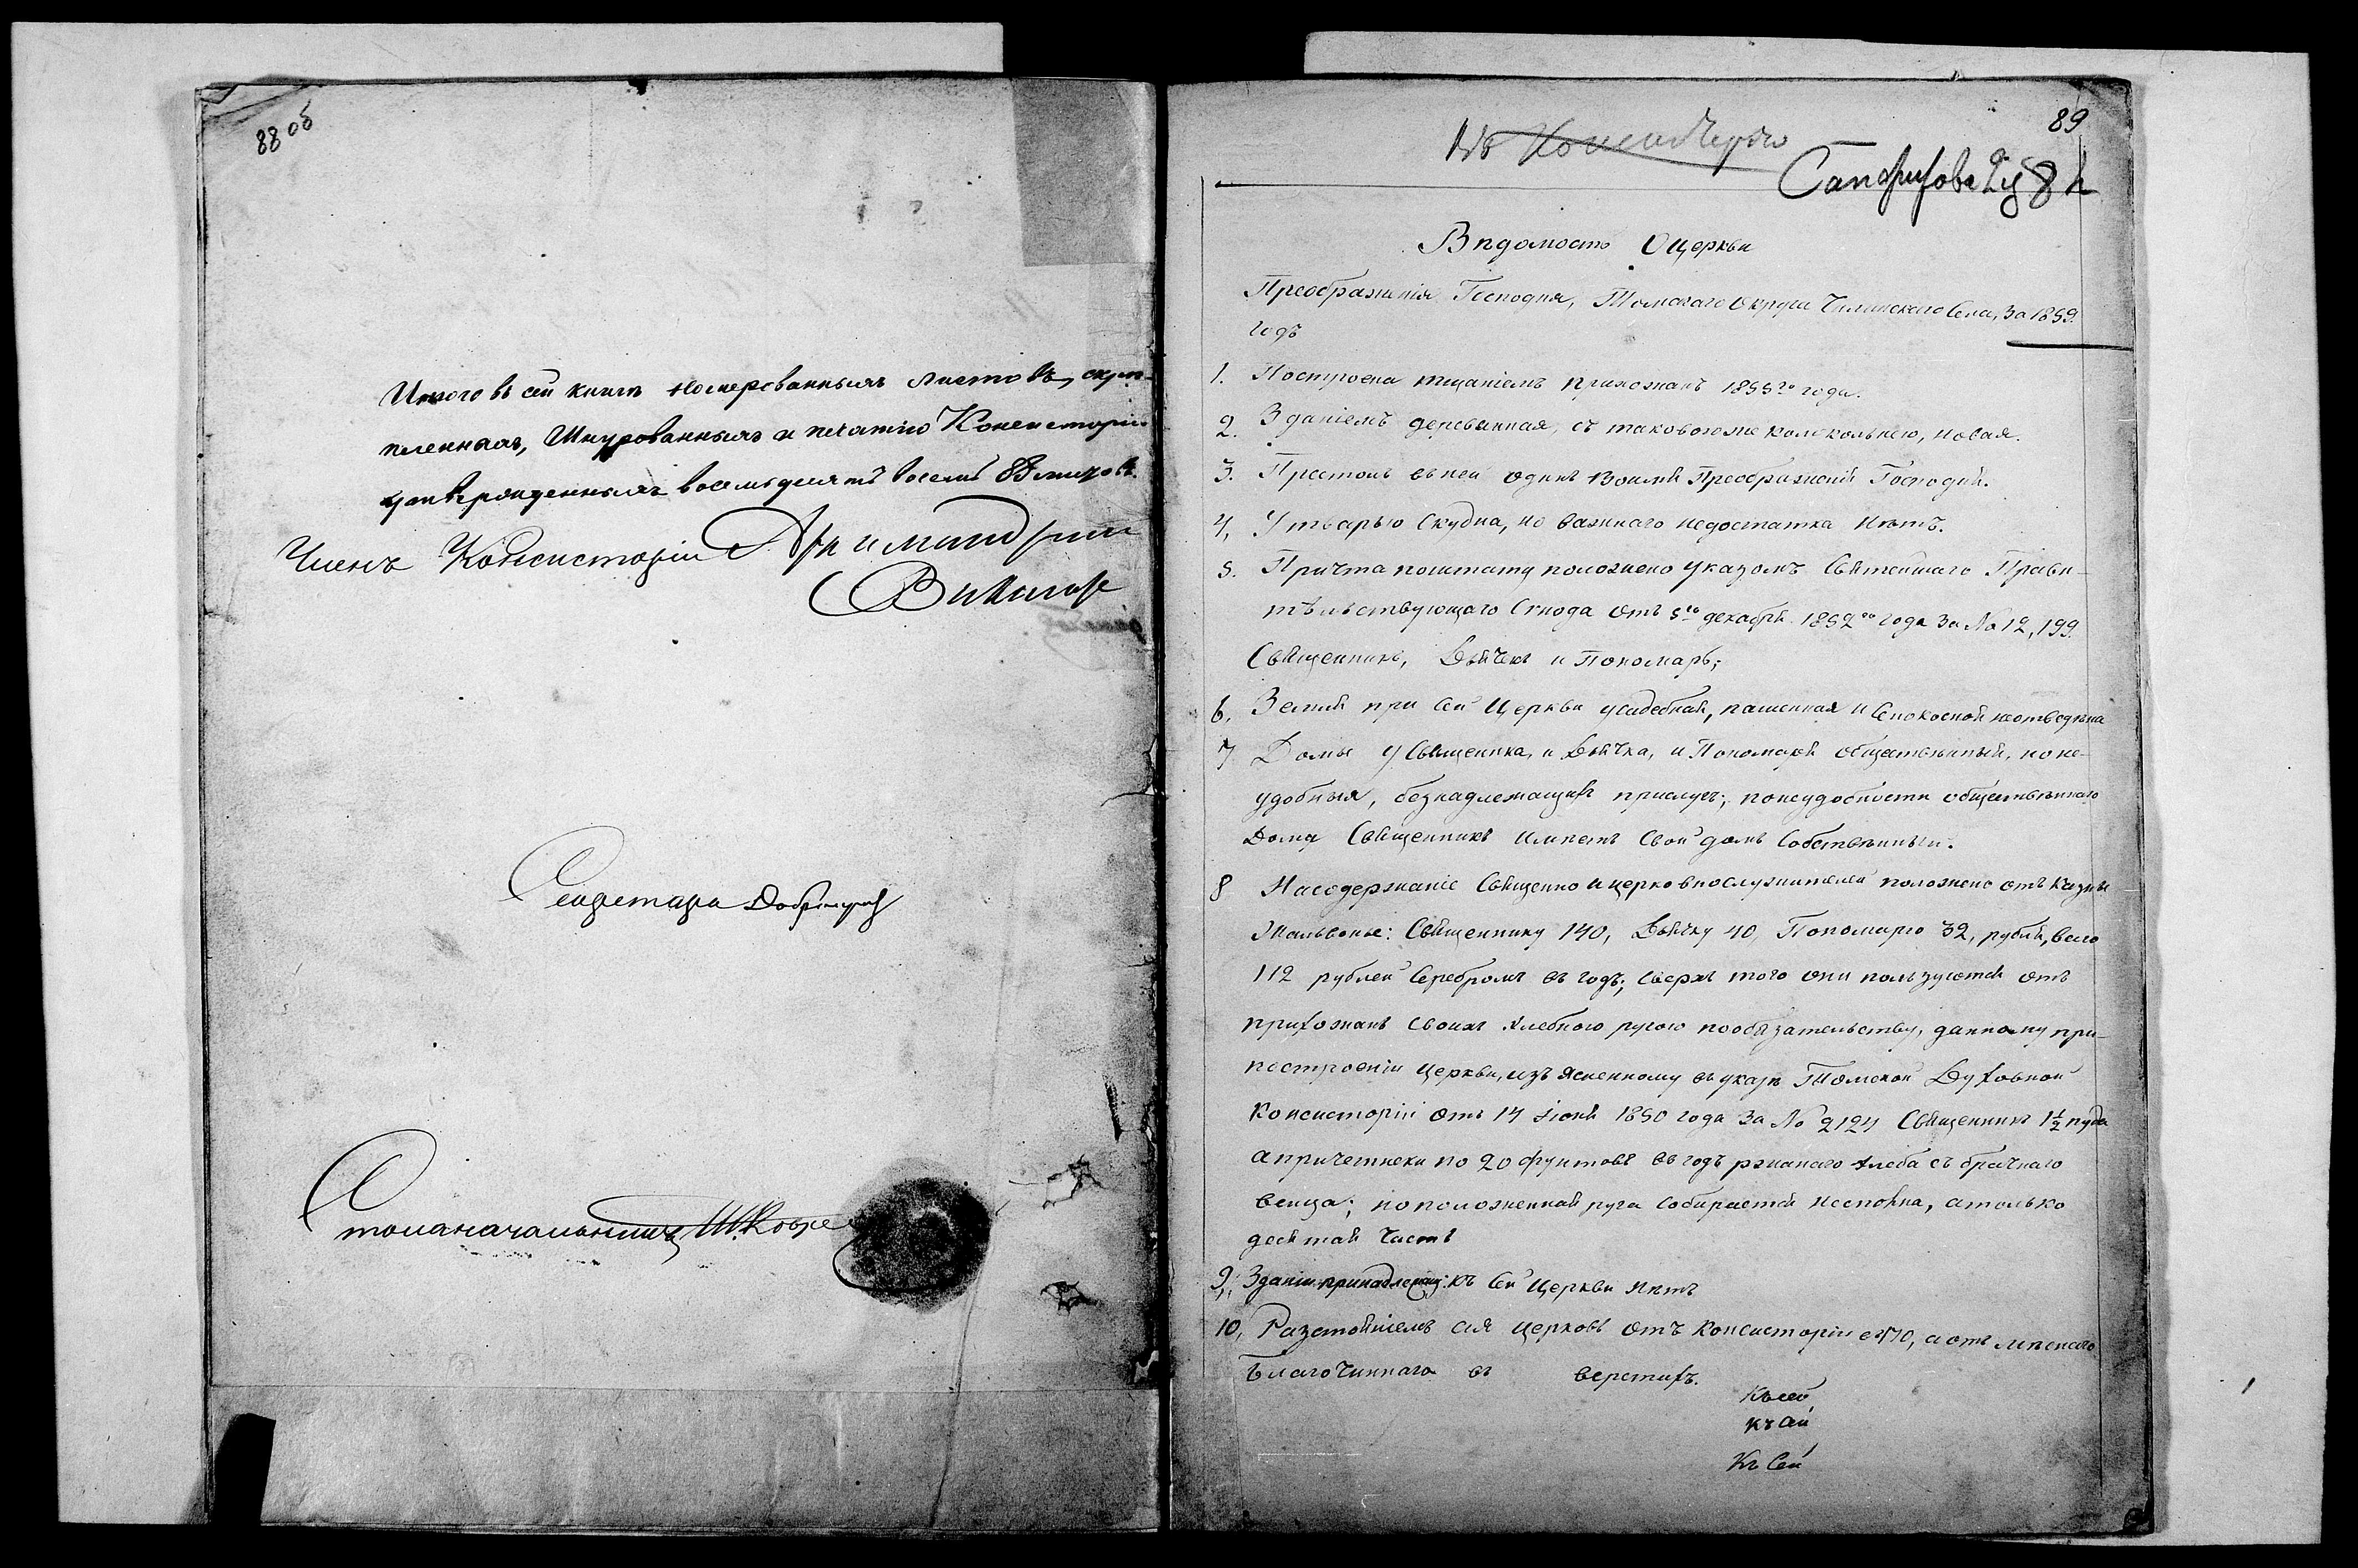 88 об
Итого въ сей книгѣ номерованныхъ листовъ, скрѣ-
пленныхъ, шнурованныхъ и печатію Консисторіи
утвержденныхъ восемьдесятъ восемь 88 листовъ.
Членъ Консисторіи Архимандритъ
Секретарь
Столоначальникъ
89
Въ Консисторію
Вѣдомость О церкви
Преображенія Господня, Томскаго Округа Чилинскаго Села, За 1859.
годъ
1. Построена тщаніемъ прихожанъ 1855го года.
2. Зданіемъ деревянная, съ таковоюже колокольнею, новая.
3. Престолъ въ ней одинъ во имя Преображенія Господня.
4, Утварью Скудна, но важнаго недостатка нѣтъ.
5. Причта поштату положено Указомъ Святѣйшаго Прави-
тѣльствующаго Сѵнода отъ 5го декабря 1852го года За № 12,199.
Священникъ, Дьячекъ и Пономарь;
6, Земли при Сей Церкви усадебной, пашенная и Сенокосной неотведѣна
7 Домы у Священника, и Дьячка, и Пономаря общественный, но не-
удобныя, безнадлежащихъ прислугъ; понеудобности общественнаго
Дома Священникъ имѣетъ Свой домъ Собственный.
8 Насодержаніе Священно ицерковнослужителей положено отъ казны
Жалованье: Священнику 140, Дьячку 40, Пономарю 32, рубля, всего
112 рублей Серебромъ въ годъ; Сверхъ того они пользуются отъ
прихожанъ своихъ хлебною ругою пообязательству, данному при-
построеніи церкви, изъясненному въ указѣ Томской Духовной
Консисторіи отъ 14 іюня 1850 года За № 2124 Священникъ 1½ пуда
апричетники по 20 фунтовъ въ годъ ржанаго хлеба съ брачнаго
венца; но положенная руга собирается несполна, атолько
десятая Часть
9,, Зданіи принадлежащ: къ Сей Церкви нѣтъ
10, Разстояніемъ сія церковь отъ Консисторіи въ 170, а отъ мѣстнаго
Благочиннаго въ верстахъ.
Къ сей
къ сей
Къ Сей